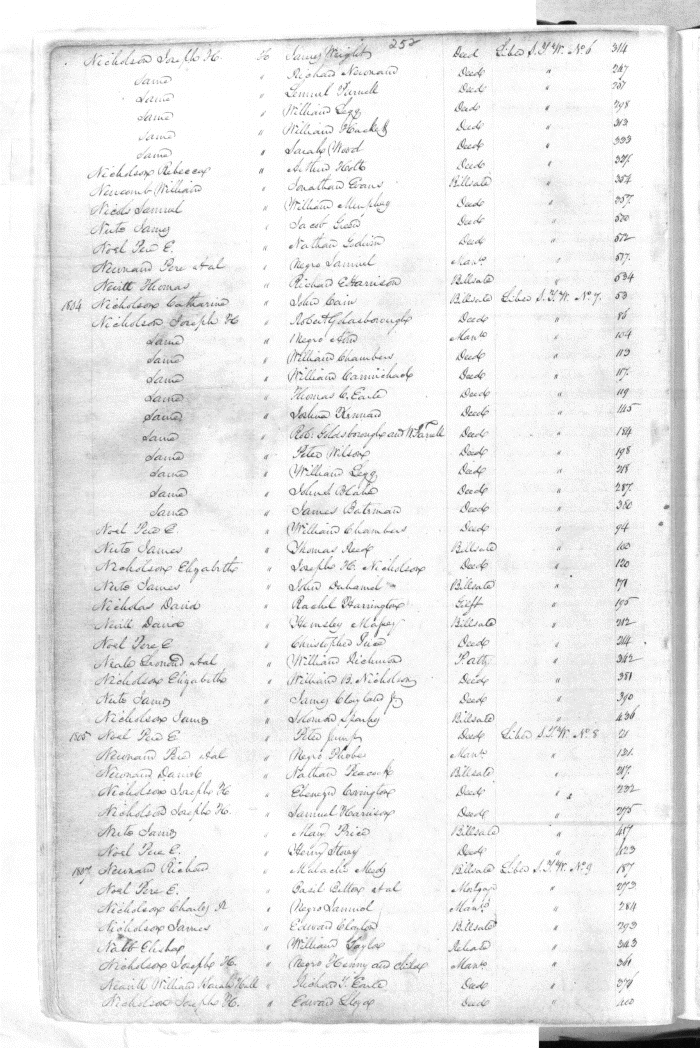 252
Nicholson Joseph H. to James Wright Deed Liber S.T.W. No. 6 314
Same " Richard Newnand Deed " 247
Same " Lemuel Purnell Deed " 251
Same " William Legg Deed " 298
Same " William Hackett Deed " 313
Same " Sarah Wood Deed " 333
Nicholson Rebecca " Arthur Holt Deed "
Newcomb William " Jonathan Evans Billsale " 354
Nicols Samuel " William Murphey Deed " 357
Nuto James " Jacob Deed " 500
Noel Pere E. " Nathan Godwin Deed " 512
Newnand Pere et al " Negro Samuel Manu. " 517
Nevitt Thomas " Richard C Harrison Billsale " 534
1804 Nicholson Catharine " John Cain Billsale Liber S.T.W. No. 7. 53
Nicholson Joseph H " Robert Goldsborough Deed " 86
Same " Negro Manu " 104
Same " William Chambers Deed " 113
Same " William Carmichael Deed " 117
Same " Thomas C. Earle Deed " 119
Same " Joshua Kennard Deed " 145
Same " Rob. Goldsborough and W. Purnell Deed " 184
Same " Peter Wilson Deed " 198
Same " William Legg Deed " 218
Same " John Blake Deed " 287
Same " James Bateman Deed " 380
Noel Pere E. " William Chambers Deed " 94
Nuto James " Thomas Reed Billsale " 100
Nicholson Elizabeth " Joseph H. Nicholson Deed " 120
Nuto James " John Duhamel Billsale " 178
Nicholas David " Rachel Harrington Gift " 195
Nevill David " Hemsley Billsale " 212
Noel Pere E " Christopher Deed " 214
Neale et al " William Richmon " 342
Nicholson Elizabeth " William B. Nicholson Deed " 381
Nuto James " James Clayland Jr Deed " 390
Nicholson James " Solomon Sparks Billsale " 436
1805 Noel Pere E " Peter Jump Deed Liber S.T.W. No. 8 21
Newnand Pere et al " Negro Phebe Manu " 131
Newnand Daniel " Nathan Peacock Billsale " 217
Nicholson Joseph H " Ebenezer Covington Deed " 232
Nicholson Joseph H. " Samuel Harrison Deed " 275
Nuto James " Mary Price Billsale " 417
Noel Pere E. " Henry Deed " 423
1807 Newnand Richard " Malachi Meeds Billsale Liber S.T.W. No. 9 187
Noel Pere E. " Basil et al Mortgage " 273
Nicholson Charles " Negro Samuel Manu. " 284
Nicholson James " Edward Clayton Billsale " 293
Nabb Elisha " William Taylor Release " 343
Nicholson Joseph H. " Negro Henny and Manu. " 361
Nevitt William " Richard T. Earle Deed " 376
Nicholson Joseph H. " Edward Lloyd Deed " 400